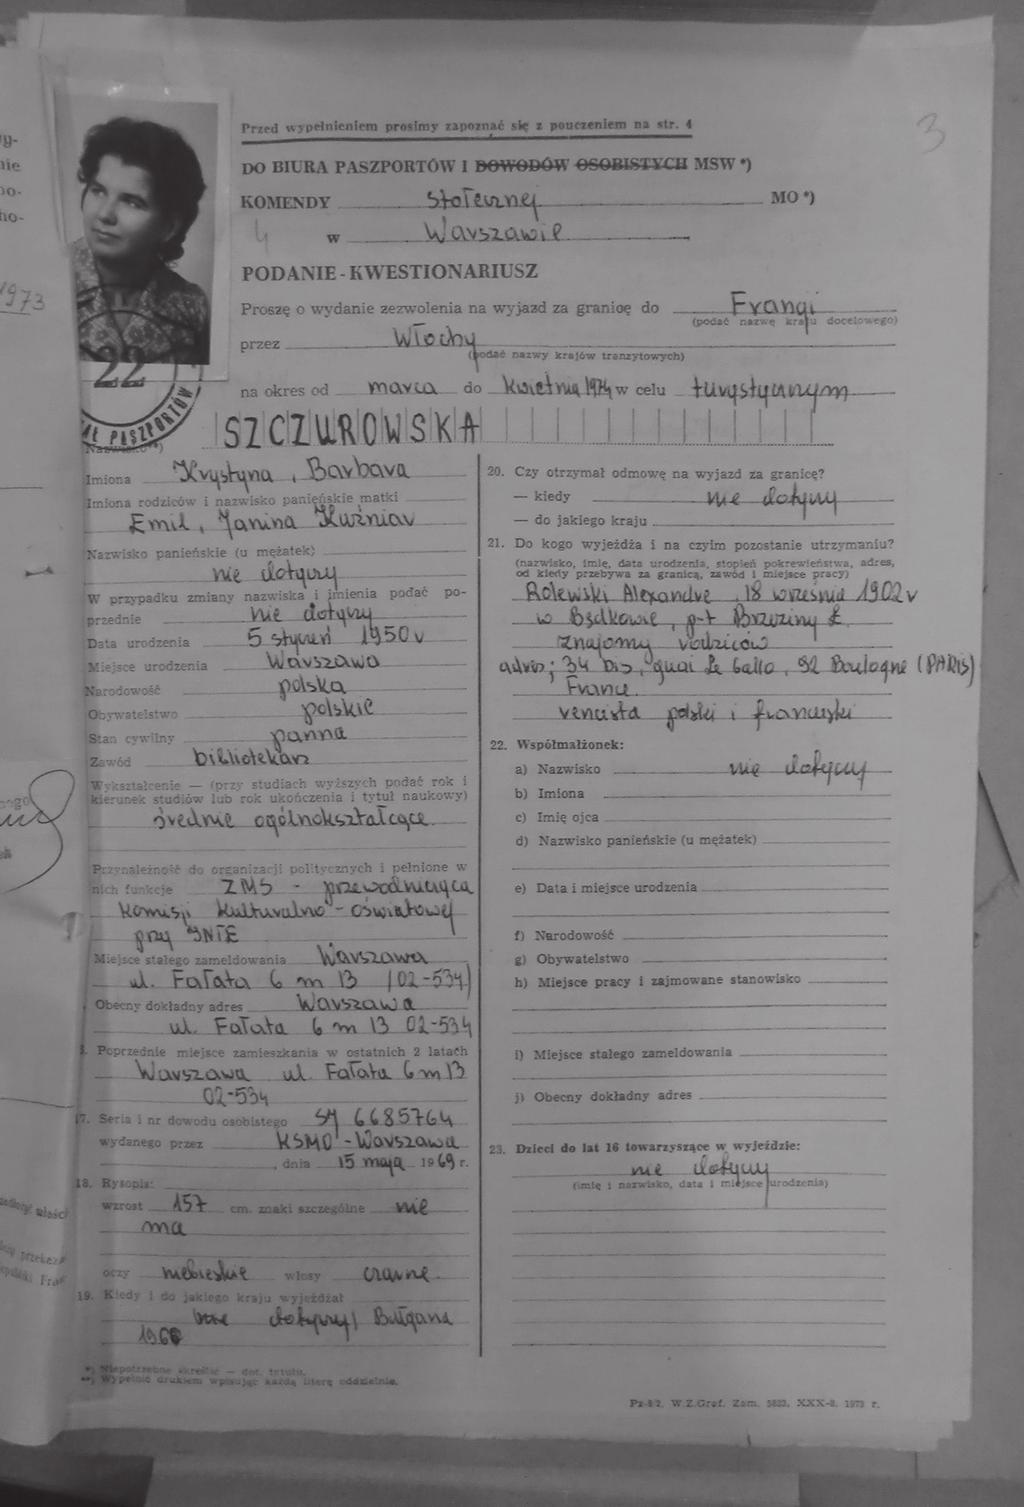 3
Przed wypełnieniem prosimy zapoznać się z pouczeniem na str. 4
DO BIURA PASZPORTÓW I DOWODÓW OSOBISTYCH MSW *)
KOMENDY Stołecznej MO *)
4 w Warszawie
PODANIE-KWESTIONARIUSZ
1973
Proszę o wydanie zezwolenia na wyjazd za granicę do Francji
(podać nazwę kraju docelowego)
przez Włochy
(podać nazwy krajów tranzytowych)
22
na okres od marca do kwietnia 1974 w celu turystycznym
PASZPORTÓW
SZCZUROWSKA
Nazwisko **)
Imiona Krystyna, Barbara
Imiona rodziców i nazwisko panieńskie matki
Emil, Janina Kuźniar
Nazwisko panieńskie (u mężatek)
nie dotyczy
W przypadku zmiany nazwiska i imienia podać po-
przednie nie dotyczy
Data urodzenia 5 styczeń 1950 r
Miejsce urodzenia Warszawa
Narodowość polska
Obywatelstwo polskie
Stan cywilny panna
Zawód bibliotekarz
Wykształcenie — (przy studiach wyższych podać rok i
kierunek studiów lub rok ukończenia i tytuł naukowy)
średnie ogólnokształcące
Przynależność do organizacji politycznych i pełnione w
nich funkcje ZMS - przewodnicząca
Komisji Kulturalno-oświatowej
przy INTE
Miejsce stałego zameldowania Warszawa
ul. Fałata 6 m 13 (02-534)
Obecny dokładny adres Warszawa
ul. Fałata 6 m 13 02-534
Poprzednie miejsce zamieszkania w ostatnich 2 latach
Warszawa ul. Fałata 6 m 13
02-534
17. Seria i nr dowodu osobistego SM 6685764
wydanego przez KSMO - Warszawa
, dnia 15 maja 1969 r.
18. Rysopis:
wzrost 157 cm. znaki szczególne nie
ma
oczy niebieskie włosy czarne
19. Kiedy i do jakiego kraju wyjeżdżał
dotyczy/ Bułgaria
1966
*) Niepotrzebne skreślić — dot. tytułu.
**) Wypełnić drukiem wpisując każdą literę oddzielnie.
20. Czy otrzymał odmowę na wyjazd za granicę?
— kiedy nie dotyczy
— do jakiego kraju
21. Do kogo wyjeżdża i na czyim pozostanie utrzymaniu?
(nazwisko, imię, data urodzenia, stopień pokrewieństwa, adres,
od kiedy przebywa za granicą, zawód i miejsce pracy)
Rolewski Alexandre, 18 września 1902 r
w Bądkowie, p-t Brzeziny Ł.
znajomy rodziców
adres; 34 bis, quai Le Gallo, 92 Boulogne (PARIS)
France
rencista polski i francuski
22. Współmałżonek:
a) Nazwisko nie dotyczy
b) Imiona
c) Imię ojca
d) Nazwisko panieńskie (u mężatek)
e) Data i miejsce urodzenia
f) Narodowość
g) Obywatelstwo
h) Miejsce pracy i zajmowane stanowisko
i) Miejsce stałego zameldowania
j) Obecny dokładny adres
23. Dzieci do lat 16 towarzyszące w wyjeździe:
nie dotyczy
(imię i nazwisko, data i miejsce urodzenia)
Pz-8/2. W.Z.Graf. Zam. 5833, XXX-8, 1973 r.